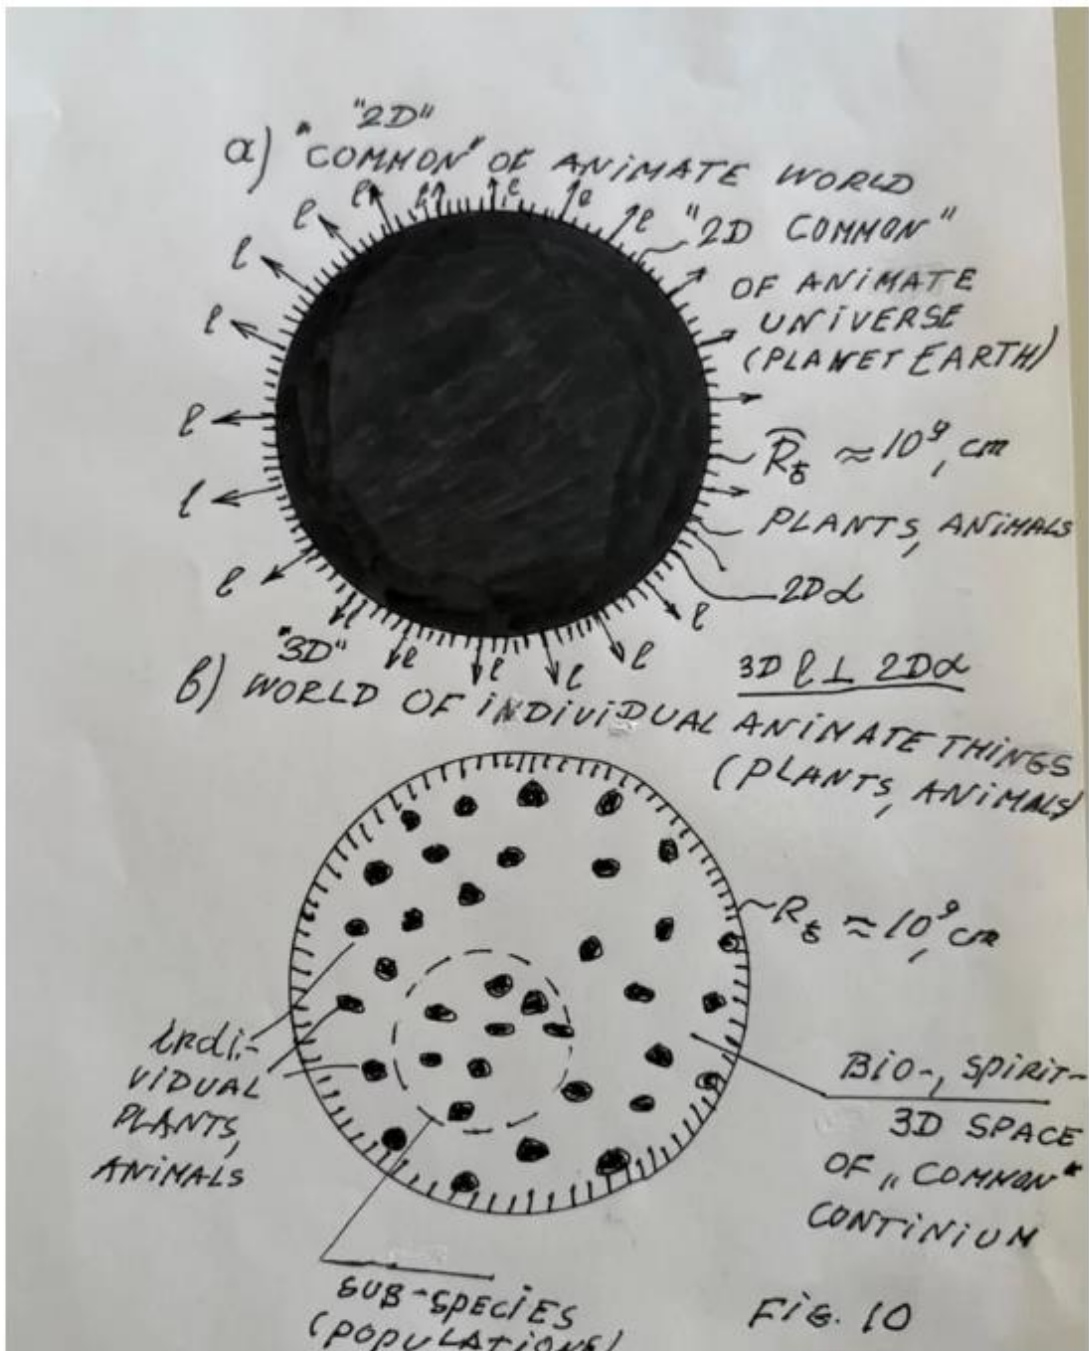 "2D"
a) "COMMON" OF ANIMATE WORLD
l l l l l l l
"2D COMMON"
OF ANIMATE
UNIVERSE
(PLANET EARTH)
l
l
l
R♁ ≈ 10⁹, cm
l
PLANTS, ANIMALS
l
2Dα
l l l l l
"3D"
3D l ⊥ 2Dα
b) WORLD OF INDIVIDUAL ANIMATE THINGS
(PLANTS, ANIMALS)
R♁ ≈ 10⁹, cm
indi-
VIDUAL
PLANTS,
ANIMALS
BIO-, SPIRIT-
3D SPACE
OF „COMMON"
CONTINIUM
SUB-SPECIES
(POPULATIONS)
FIG. 10